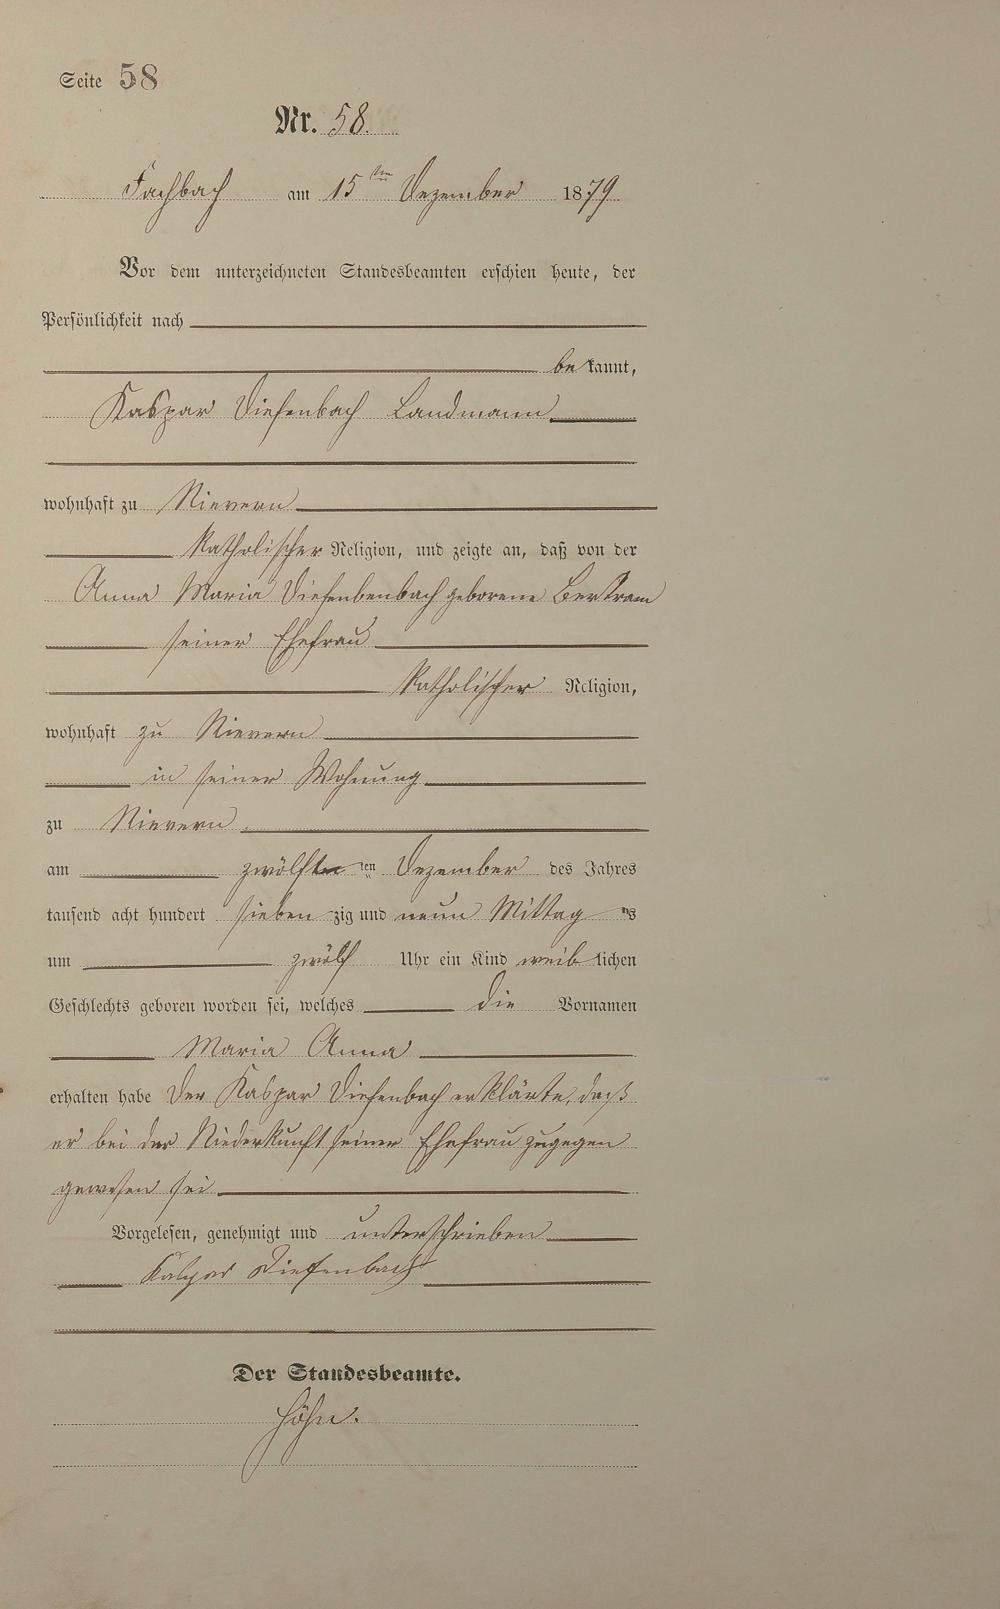 Seite 58
Nr. 58.
Fachbach am 15ten Dezember 1879
Vor dem unterzeichneten Standesbeamten erschien heute, der
Persönlichkeit nach
bekannt,
Kaspar Diefenbach Landmann
wohnhaft zu Nievern
Katholischer Religion, und zeigte an, daß von der
Anna Maria Diefenbenbach geborene Bertram
seiner Ehefrau
Katholischer Religion,
wohnhaft zu Nievern
in seiner Wohnung
zu Nievern
am zwölften ten Dezember des Jahres
tausend acht hundert siebenzig und neun Mittags
um zwölf Uhr ein Kind weiblichen
Geschlechts geboren worden sei, welches die Vornamen
Maria Anna
erhalten habe Der Kaspar Diefenbach erklärte, daß
er bei der Niederkunft seiner Ehefrau zugegen
gewesen sei
Vorgelesen, genehmigt und unterschrieben
Kaspar Diefenbach
Der Standesbeamte.
Höhn.